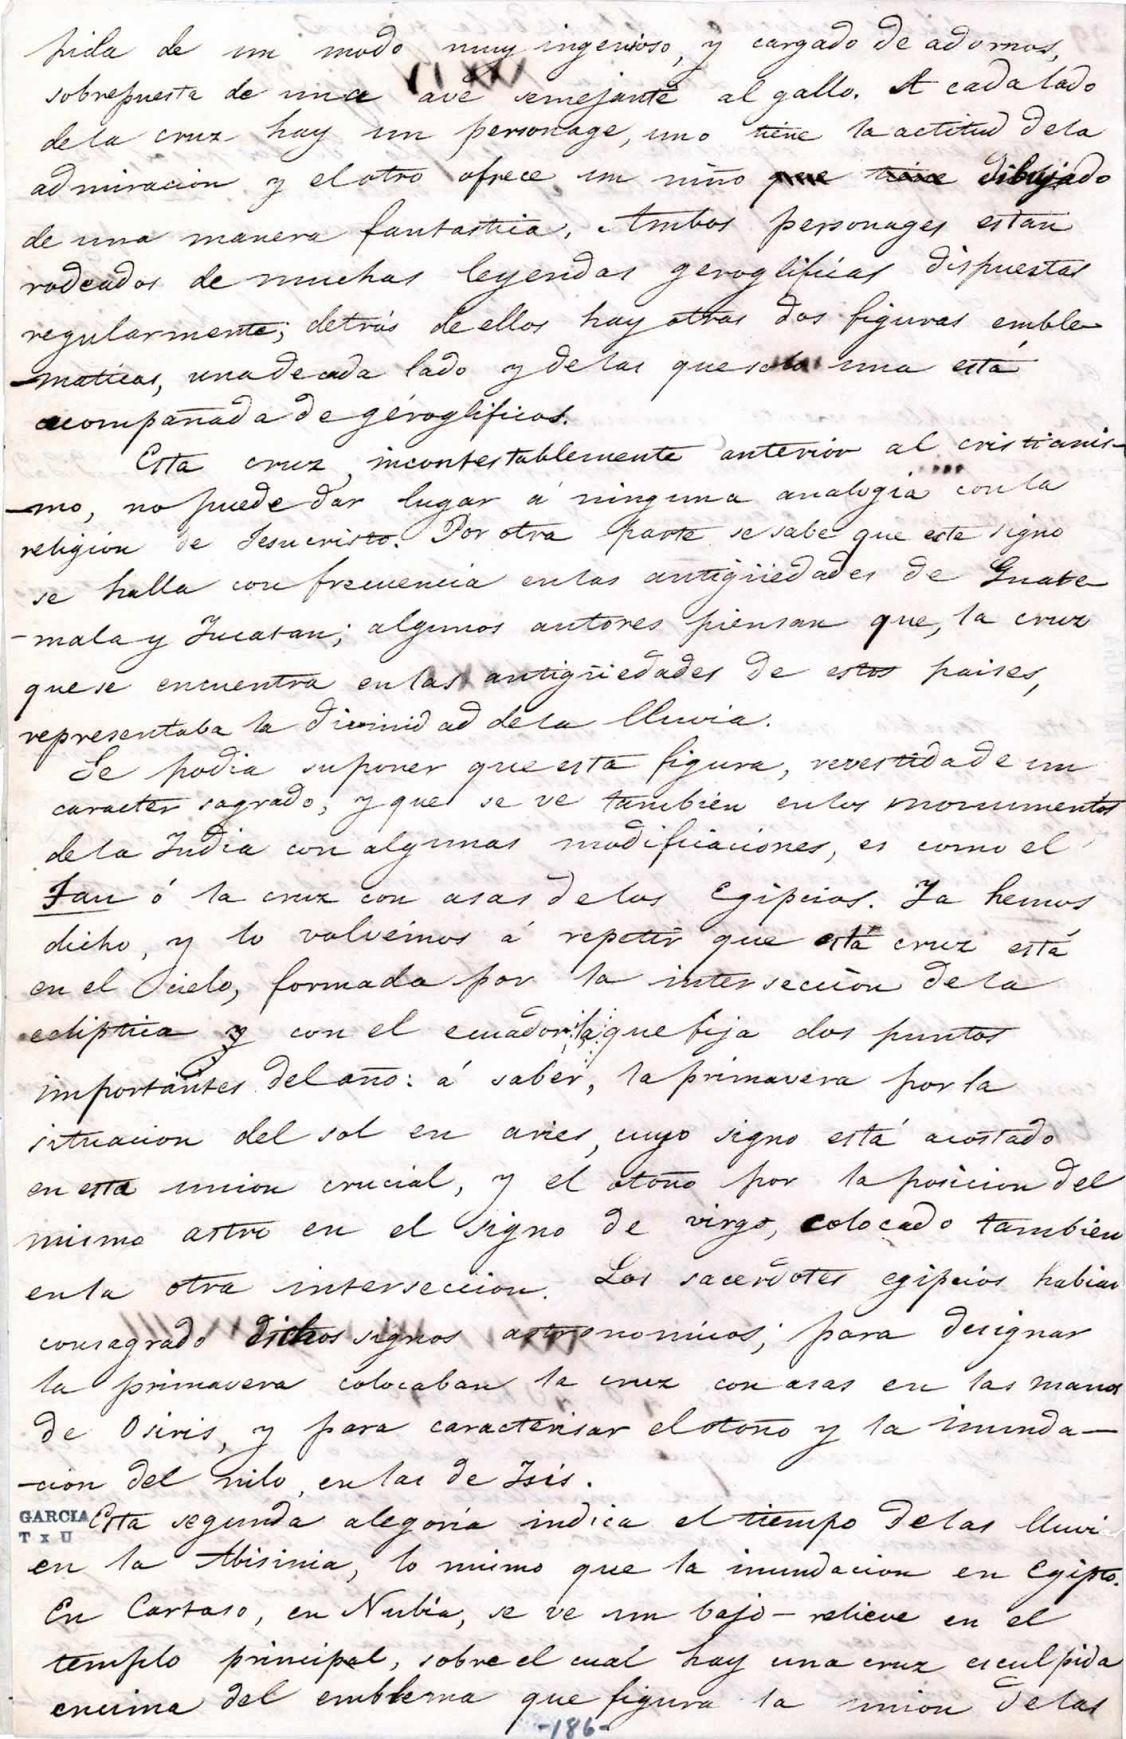 pida de un modo muy ingenioso, y cargado de adornos,
sobrepuesta de una ave semejante al gallo. A cada lado
de la cruz hay un personage, uno tiene la actitud de la
admiracion y el otro ofrece un niño que tiene dibujado
de una manera fantastica. Ambos personages estan
rodeados de muchas leyendas geroglificas dispuestas
regularmente; detrás de ellos hay otras dos figuras emble-
-maticas, una de cada lado y de las que solo una está
acompañada de géroglificos.
Esta cruz, incontestablemente anterior al cristianis-
-mo, no puede dar lugar á ninguna analogia con la
religion de Jesucristo. Por otra parte se sabe que este signo
se halla con frecuencia en las antigüedades de Guate-
-mala y Yucatan; algunos autores piensan que, la cruz
que se encuentra en las antigüedades de estos paises,
representaba la divinidad de la lluvia.
Se podia suponer que esta figura, revestida de un
caracter sagrado, y que se ve tambien en los monumentos
de la India con algunas modificaciones, es como el
Tau ó la cruz con asas de los Egipcios. Ya hemos
dicho, y lo volvémos á repetir que esta cruz está
en el Cielo, formada por la interseccion de la
ecliptica y con el ecuador; la que fija dos puntos
importantes del año: á saber, la primavera por la
situacion del sol en aries, cuyo signo está acostado
en esta union crucial, y el otoño por la posicion del
mismo astro en el signo de virgo, colocado tambien
en la otra interseccion. Los sacerdotes egipcios habian
consagrado dichos signos astronomicos; para designar
la primavera colocaban la cruz con asas en las manos
de Osiris, y para caracterisar el otoño y la inunda-
-cion del nilo, en las de Isis.
GARCIA
T x U
Esta segunda alegoria indica el tiempo de las lluvi
en la Abisinia, lo mismo que la inundacion en Egipto.
En Cartaso, en Nubia, se ve un bajo-relieve en el
templo principal, sobre el cual hay una cruz esculpida
encima del emblema que figura la union de las
-186-